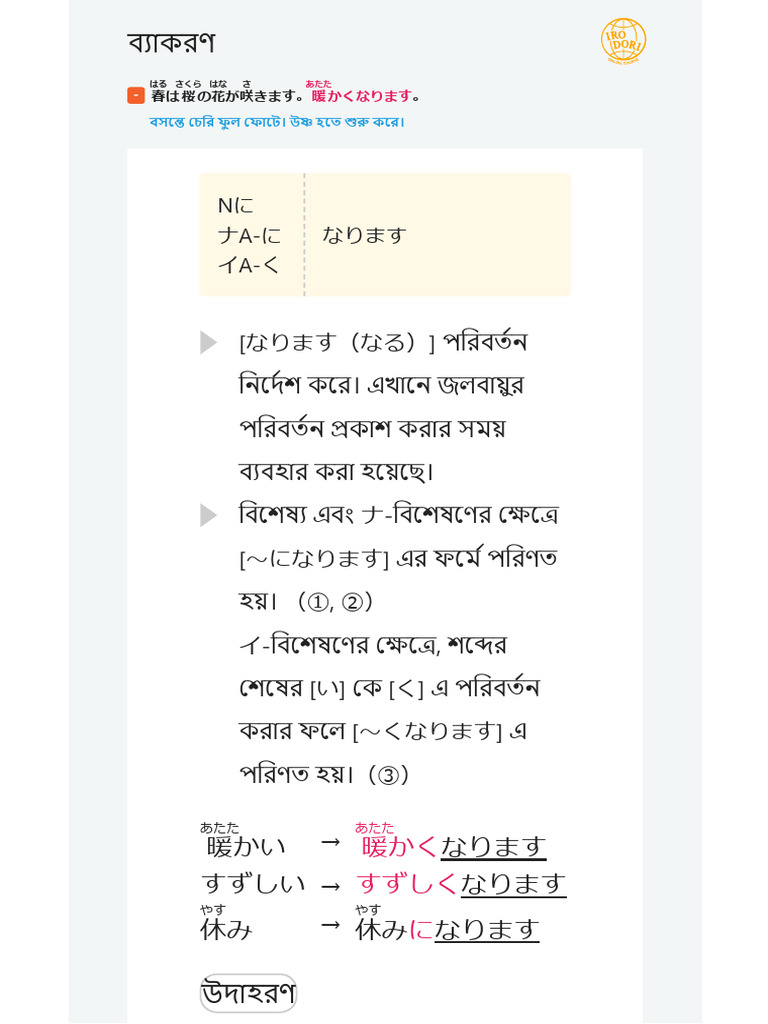 ব্যাকরণ
IRO
DORI
ONLINE COURSE
はる さくら はな さ あたた
- 春は桜の花が咲きます。暖かくなります。
বসন্তে চেরি ফুল ফোটে। উষ্ণ হতে শুরু করে।
Nに
ナA-に なります
イA-く
[なります（なる）] পরিবর্তন
নির্দেশ করে। এখানে জলবায়ুর
পরিবর্তন প্রকাশ করার সময়
ব্যবহার করা হয়েছে।
বিশেষ্য এবং ナ-বিশেষণের ক্ষেত্রে
[～になります] এর ফর্মে পরিণত
হয়। （①, ②）
イ-বিশেষণের ক্ষেত্রে, শব্দের
শেষের [い] কে [く] এ পরিবর্তন
করার ফলে [～くなります] এ
পরিণত হয়।（③）
あたた あたた
暖かい → 暖かくなります
すずしい → すずしくなります
やす やす
休み → 休みになります
উদাহরণ